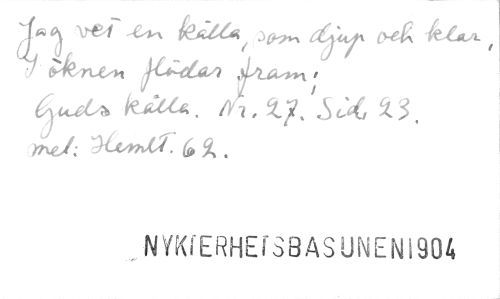 Jag vet en källa, som djup och klar,
I öknen flödar fram;
Guds källa. Nr. 27. Sid. 23.
mel: Hemlt. 62.
NYKTERHETSBASUNEN1904